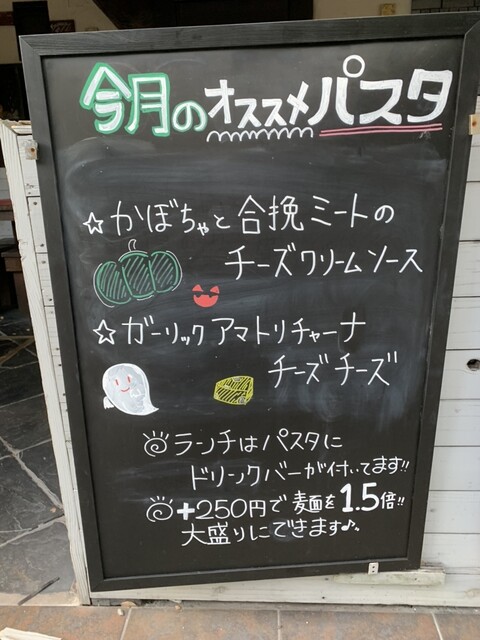 今月のオススメパスタ
☆かぼちゃと合挽ミートの
チーズクリームソース
☆ガーリックアマトリチャーナ
チーズチーズ
ランチはパスタに
ドリンクバーが付いてます!!
+250円で麺を1.5倍!!
大盛りにできます♪